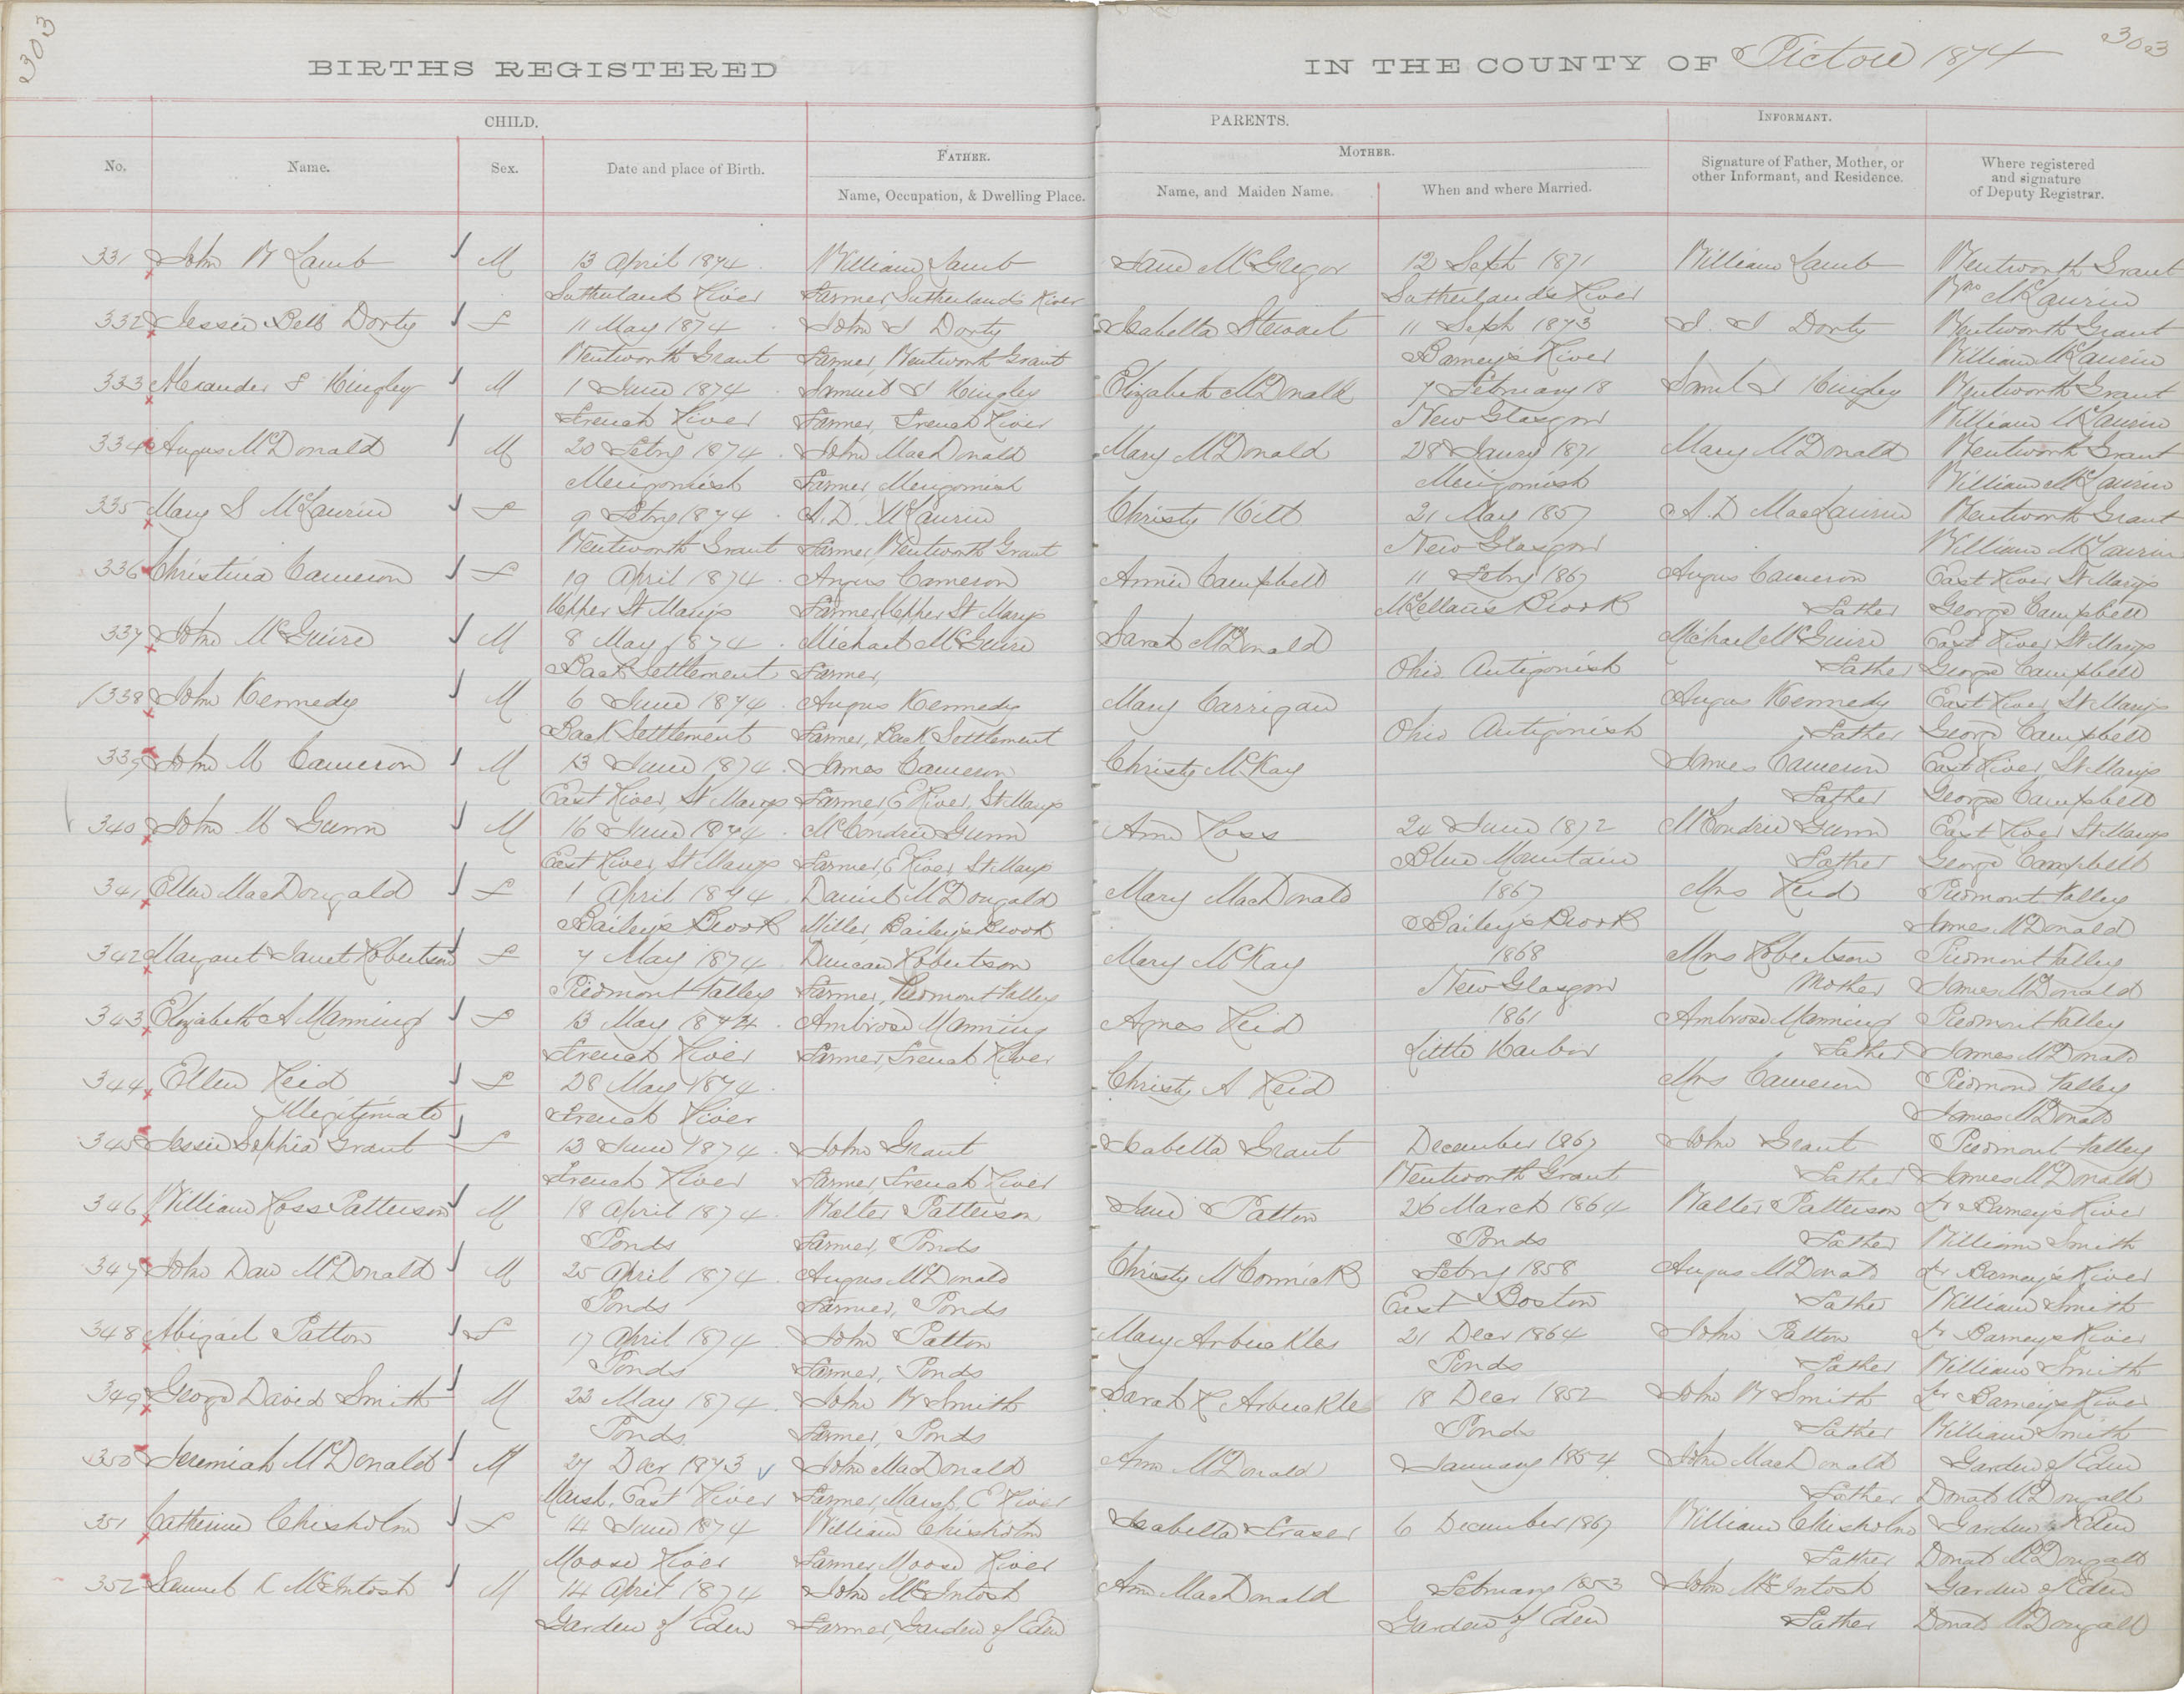 303
303
BIRTHS REGISTERED IN THE COUNTY OF Pictou 1874
CHILD. PARENTS. INFORMANT.
No. Name. Sex. Date and place of Birth. FATHER. MOTHER. Signature of Father, Mother, or other Informant, and Residence. Where registered and signature of Deputy Registrar.
Name, Occupation, & Dwelling Place. Name, and Maiden Name. When and where Married.
331 John W Lamb M 13 April 1874 William Lamb Jane McGregor 12 Sept 1871 William Lamb Wentworth Grant
Sutherland River Farmer, Sutherlands River Sutherlands River Wm McLaurin
332 Jessie Bell Dorty F 11 May 1874 John S Dorty Isabella Stewart 11 Sept 1873 J. S Dorty Wentworth Grant
Wentworth Grant Farmer, Wentworth Grant Barney's River William McLaurin
333 Alexander S Kingley M 1 June 1874 Samuel S Kingley Elizabeth McDonald 7 February 18 Saml S Kingley Wentworth Grant
French River Farmer, French River New Glasgow William McLaurin
334 Angus McDonald M 20 Febry 1874 John MacDonald Mary McDonald 28 Janry 1871 Mary McDonald Wentworth Grant
Merigomish Farmer, Merigomish Merigomish William McLaurin
335 Mary S McLaurin F 9 Febry 1874 A.D. McLaurin Christy 21 May 1857 A.D MacLaurin Wentworth Grant
Wentworth Grant Farmer, Wentworth Grant New Glasgow William McLaurin
336 Christina Cameron F 19 April 1874 Angus Cameron Annie Campbell 11 Febry 1867 Angus Cameron East River St Marys
Upper St Marys Farmer, Upper St Marys McLellan's Brook Father George Campbell
337 John McGuire M 8 May 1874 Michael McGuire Sarah McDonald Michael McGuire East River St Marys
Back Settlement Farmer, Ohio Antigonish Father George Campbell
338 John Kennedy M 6 June 1874 Angus Kennedy Mary Carrigan Angus Kennedy East River, St Marys
Back Settlement Farmer, Back Settlement Ohio Antigonish Father George Campbell
339 John M Cameron M 13 June 1874 James Cameron Christy McKay James Cameron East River, St Marys
East River, St Marys Farmer, E River, St Marys Father George Campbell
340 John M Gunn M 16 June 1874 McCondrie Gunn Ann Ross 24 June 1872 McCondrie Gunn East River St Marys
East River, St Marys Farmer, E River St Marys Blue Mountain Father George Campbell
341 Ellen MacDougald F 1 April 1874 Daniel McDougald Mary MacDonald 1867 Mrs Reid Piedmont Valley
Bailey's Brook Miller, Bailey's Brook Bailey's Brook James McDonald
342 Margaret Janet Robertson F 7 May 1874 Duncan Robertson Mary McKay 1868 Mrs Robertson Piedmont Valley
Piedmont Valley Farmer, Piedmont Valley New Glasgow Mother James McDonald
343 Elizabeth A Manning F 13 May 1874 Ambrose Manning Agnes Reid 1861 Ambrose Manning Piedmont Valley
French River Farmer, French River Little Harbor Father James McDonald
344 Ellen Reid F 28 May 1874 Christy A Reid Mrs Cameron Piedmond Valley
Illegitimate French River James McDonald
345 Jessie Sophia Grant F 13 June 1874 John Grant Isabella Grant December 1867 John Grant Piedmont Valley
French River Farmer, French River Wentworth Grant Father James McDonald
346 William Ross Patterson M 18 April 1874 Walter Patterson Jane Patton 26 March 1864 Walter Patterson Lr Barney's River
Ponds Farmer, Ponds Ponds Father William Smith
347 John Dan McDonald M 25 April 1874 Angus McDonald Christy McCormick Febry 1858 Angus McDonald Lr Barney's River
Ponds Farmer, Ponds East Boston Father William Smith
348 Abigail Patton F 17 April 1874 John Patton Mary Arbuckles 21 Decr 1864 John Patton Lr Barneys River
Ponds Farmer, Ponds Ponds Father William Smith
349 George David Smith M 23 May 1874 John W Smith Sarah R Arbuckles 18 Decr 1852 John W Smith Lr Barneys River
Ponds Farmer, Ponds Ponds Father William Smith
350 Jeremiah McDonald M 27 Decr 1873 John MacDonald Ann McDonald January 1854 John MacDonald Garden of Eden
Marsh, East River Farmer, Marsh, E River Father Donald McDougall
351 Catherine Chisholm F 14 June 1874 William Chisholm Isabella Fraser 6 December 1867 William Chisholm Garden of Eden
Moose River Farmer, Moose River Father Donald McDougall
352 Samuel R McIntosh M 14 April 1874 John McIntosh Ann MacDonald February 1853 John McIntosh Garden of Eden
Garden of Eden Farmer, Garden of Eden Garden of Eden Father Donald McDougall